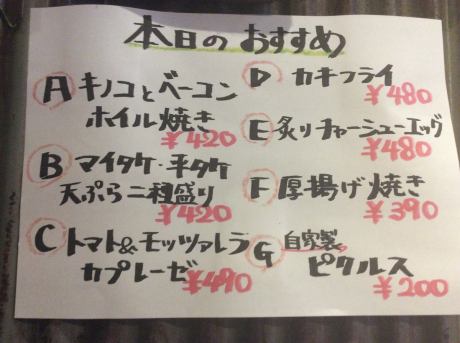 本日のおすすめ
A キノコとベーコン
ホイル焼き
¥420
B マイタケ・平タケ
天ぷら二種盛り
¥420
C トマト&モッツァレラ
カプレーゼ
¥490
D カキフライ
¥480
E 炙りチャーシューエッグ
¥480
F 厚揚げ焼き
¥390
G 自家製
ピクルス
¥200